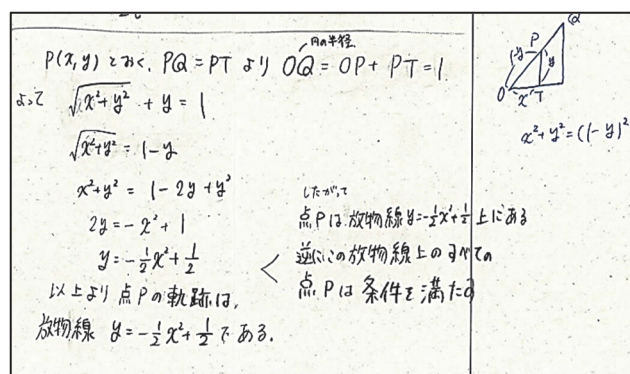 P(x,y) とおく、PQ=PTより OQ=OP+PT=1
円の半径
よって √x²+y² + y = 1
√x²+y² = 1-y
x²+y² = 1-2y+y²
2y = -x²+1
y = -1/2x²+1/2
以上より点Pの軌跡は、
放物線 y = -1/2x²+1/2 である.
したがって
点Pは放物線y=-1/2x²+1/2上にある
逆にこの放物線上のすべての
点Pは条件を満たす
Q
P
1-y
y
O
x
T
x²+y²=(1-y)²